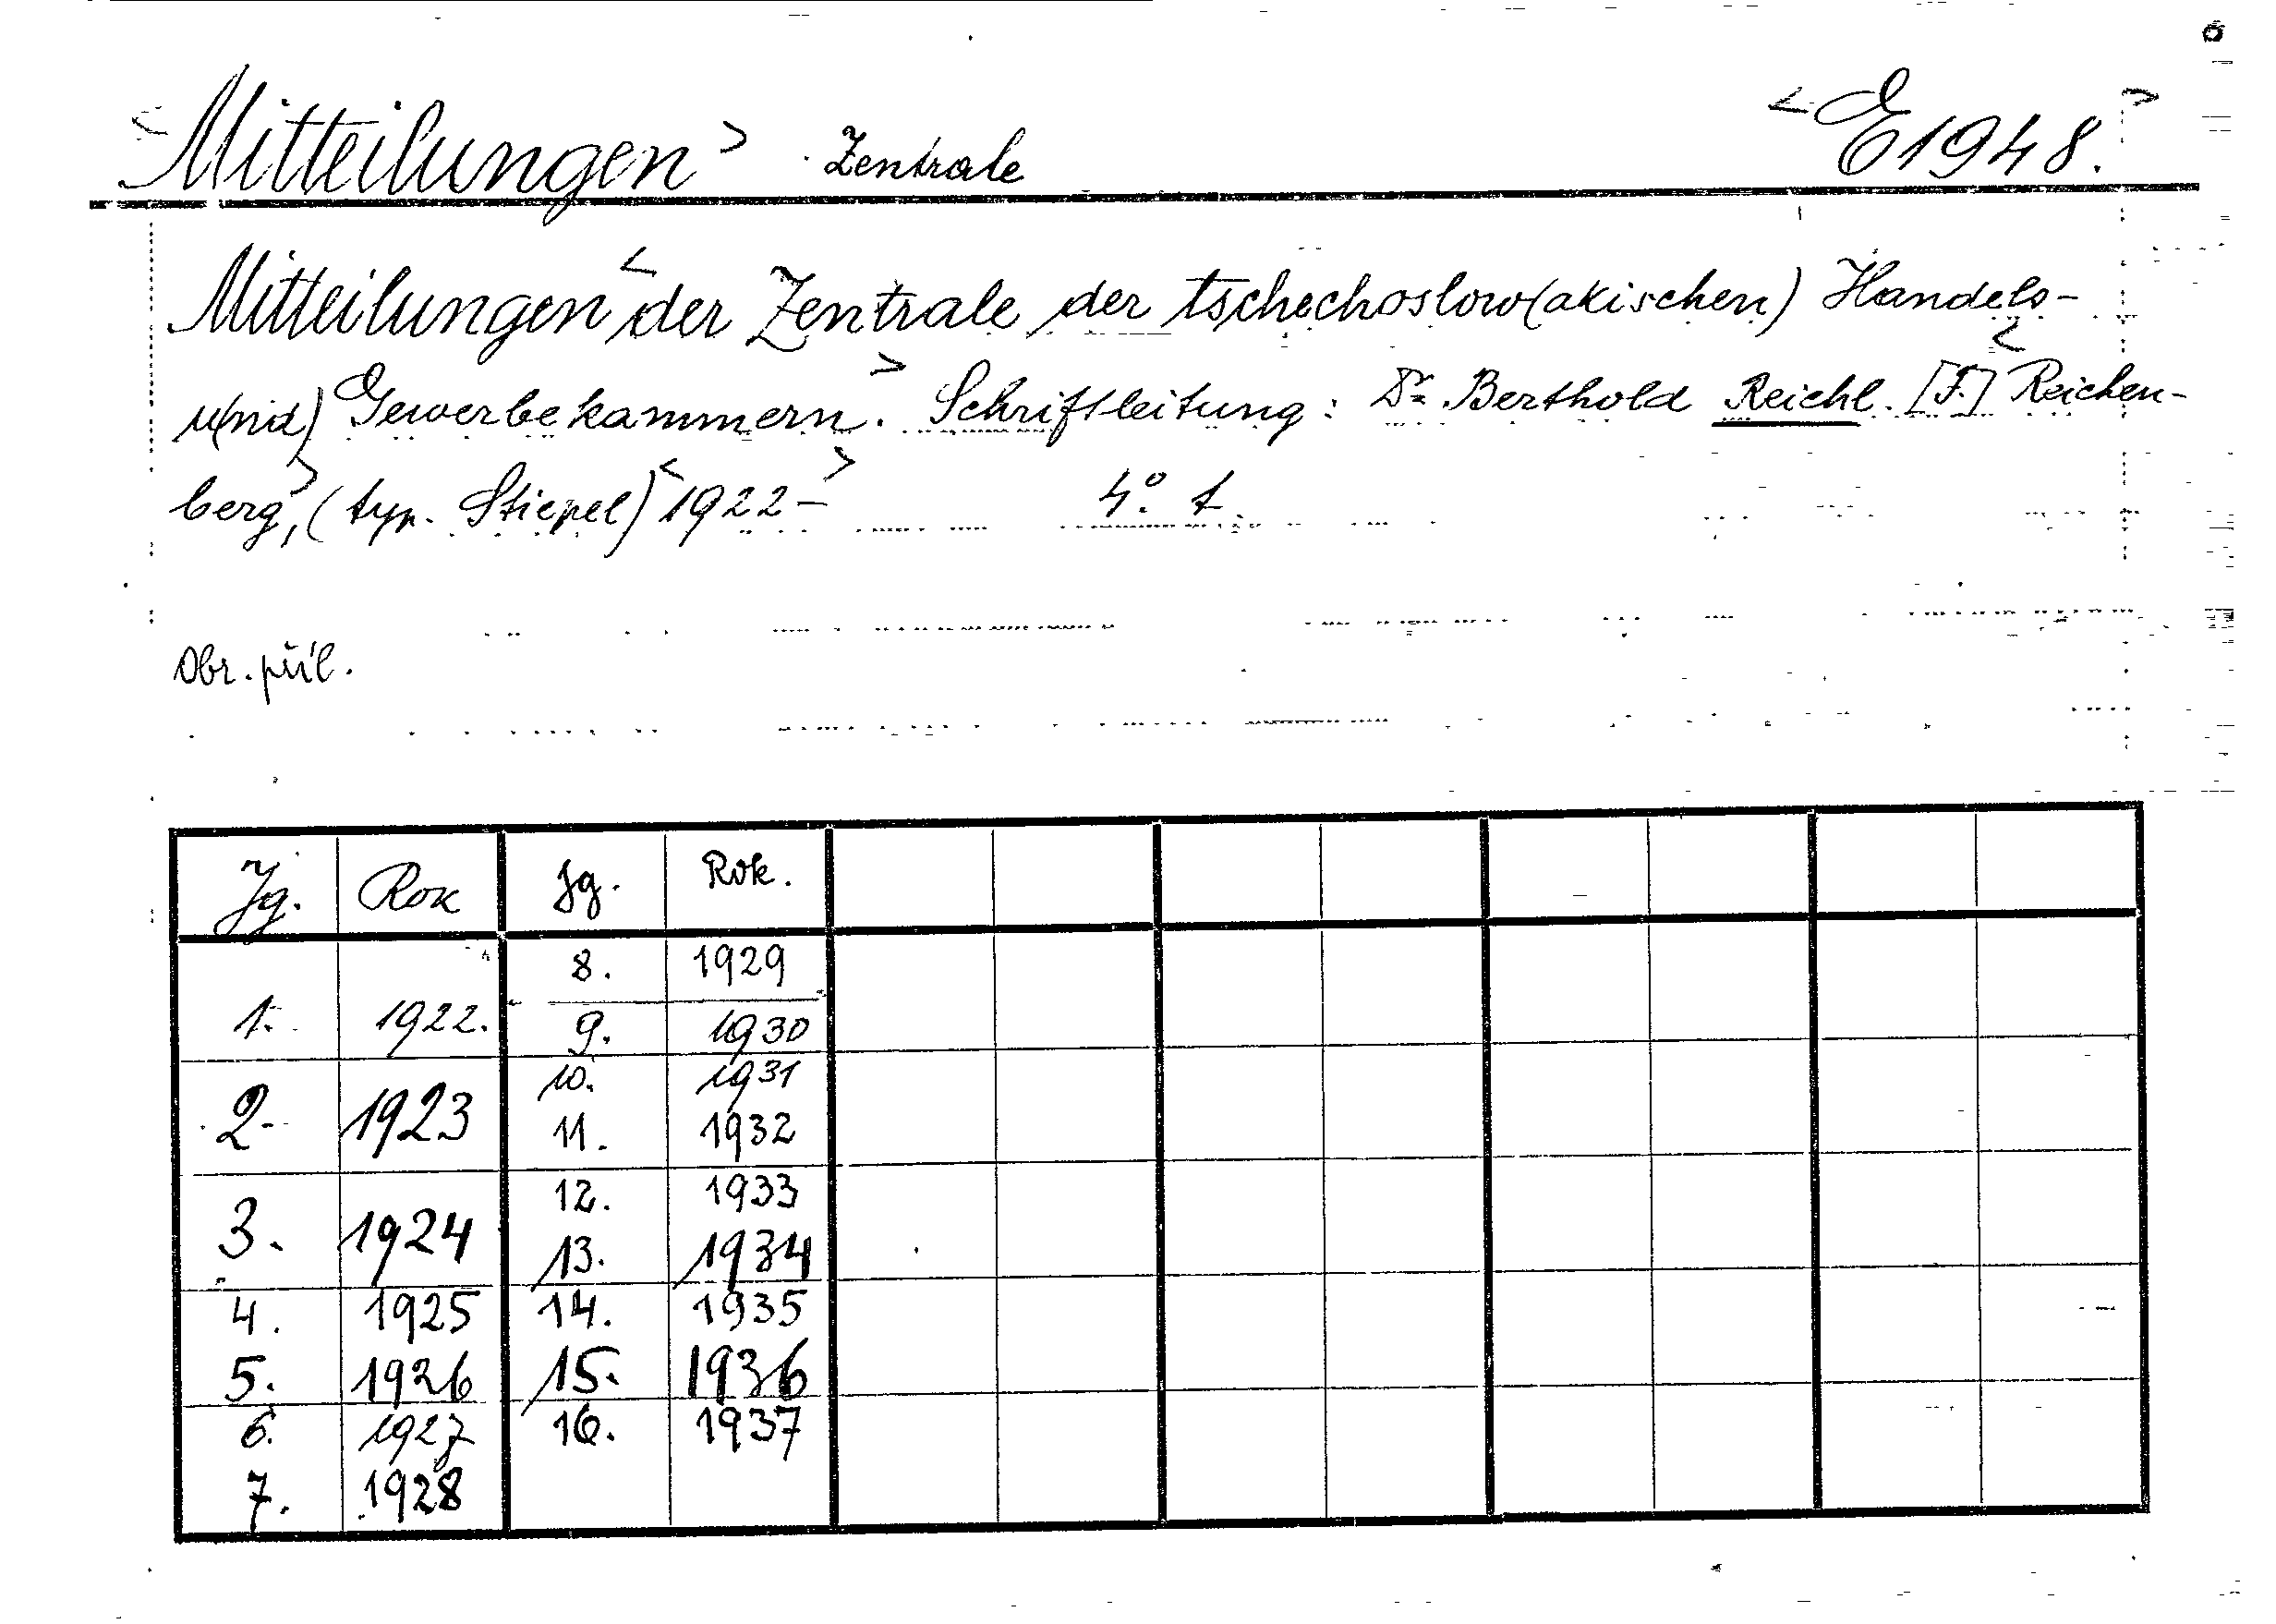 <Mitteilungen> Zentrale <E 1948.>
Mitteilungen <der Zentrale der tschechoslow(akischen) Handels-
u(nd) Gewerbekammern.> Schriftleitung: Dr. Berthold Reichl. [F.] <Reichen-
berg>, (typ. Stiepel) <1922-> 4°. t.
Obr. příl.
Jg. Rok Jg. Rok.
8. 1929
1. 1922. 9. 1930
10. 1931
2. 1923 11. 1932
12. 1933
3. 1924 13. 1934
4. 1925 14. 1935
5. 1926 15. 1936
6. 1927 16. 1937
7. 1928